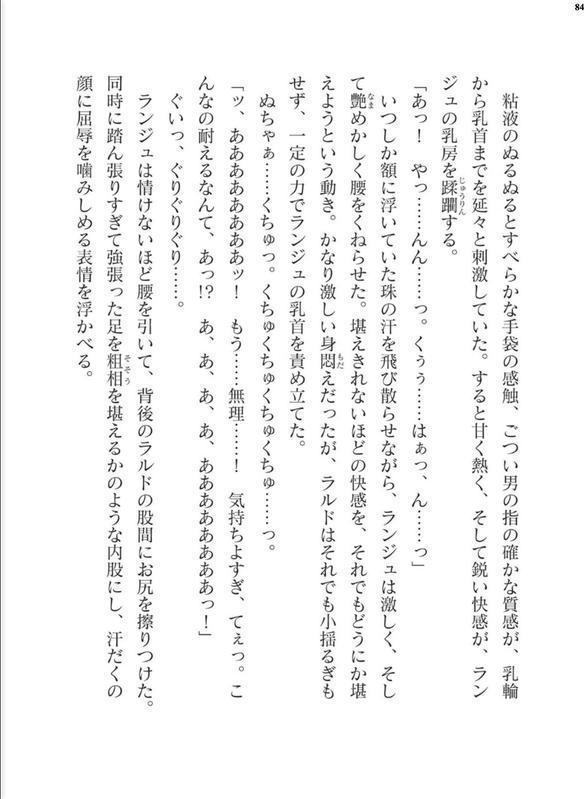 84
粘液のぬるぬるとすべらかな手袋の感触、ごつい男の指の確かな質感が、乳輪
から乳首までを延々と刺激していた。すると甘く熱く、そして鋭い快感が、ラン
ジュの乳房を蹂躙する。
「あっ！　やっ……んん……っ。くぅぅ……はぁっ、ん……っ」
いつしか額に浮いていた珠の汗を飛び散らせながら、ランジュは激しく、そし
て艶めかしく腰をくねらせた。堪えきれないほどの快感を、それでもどうにか堪
えようという動き。かなり激しい身悶えだったが、ラルドはそれでも小揺るぎも
せず、一定の力でランジュの乳首を責め立てた。
ぬちゃぁ……くちゅっ。くちゅくちゅくちゅくちゅ……っ。
「ッ、あああああああぁッ！　もう……無理……！　気持ちよすぎ、てぇっ。こ
んなの耐えるなんて、あっ!?　あ、あ、あ、あ、ああああああああっ！」
ぐいっ、ぐりぐりぐり……。
ランジュは情けないほど腰を引いて、背後のラルドの股間にお尻を擦りつけた。
同時に踏ん張りすぎて強張った足を粗相を堪えるかのような内股にし、汗だくの
顔に屈辱を噛みしめる表情を浮かべる。